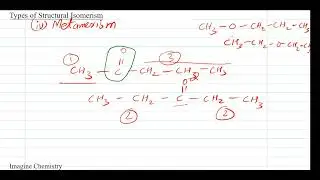 Types of Structural Isomerism
(iv) Metamerism
CH3 - O - CH2 - CH2 - CH3
CH3 - CH2 - O - CH2 - CH3
① O ③
CH3 - C - CH2 - CH2 - CH3
O
CH3 - CH2 - C - CH2 - CH3
② ②
Imagine Chemistry